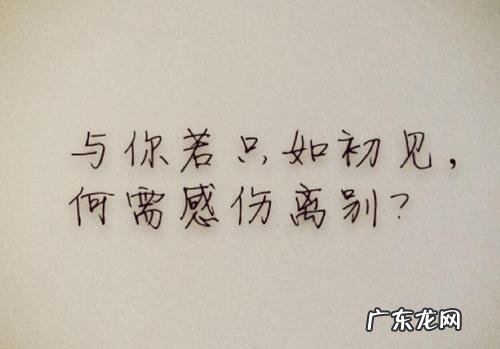 与你若只如初见，
何需感伤离别？
广东龙网